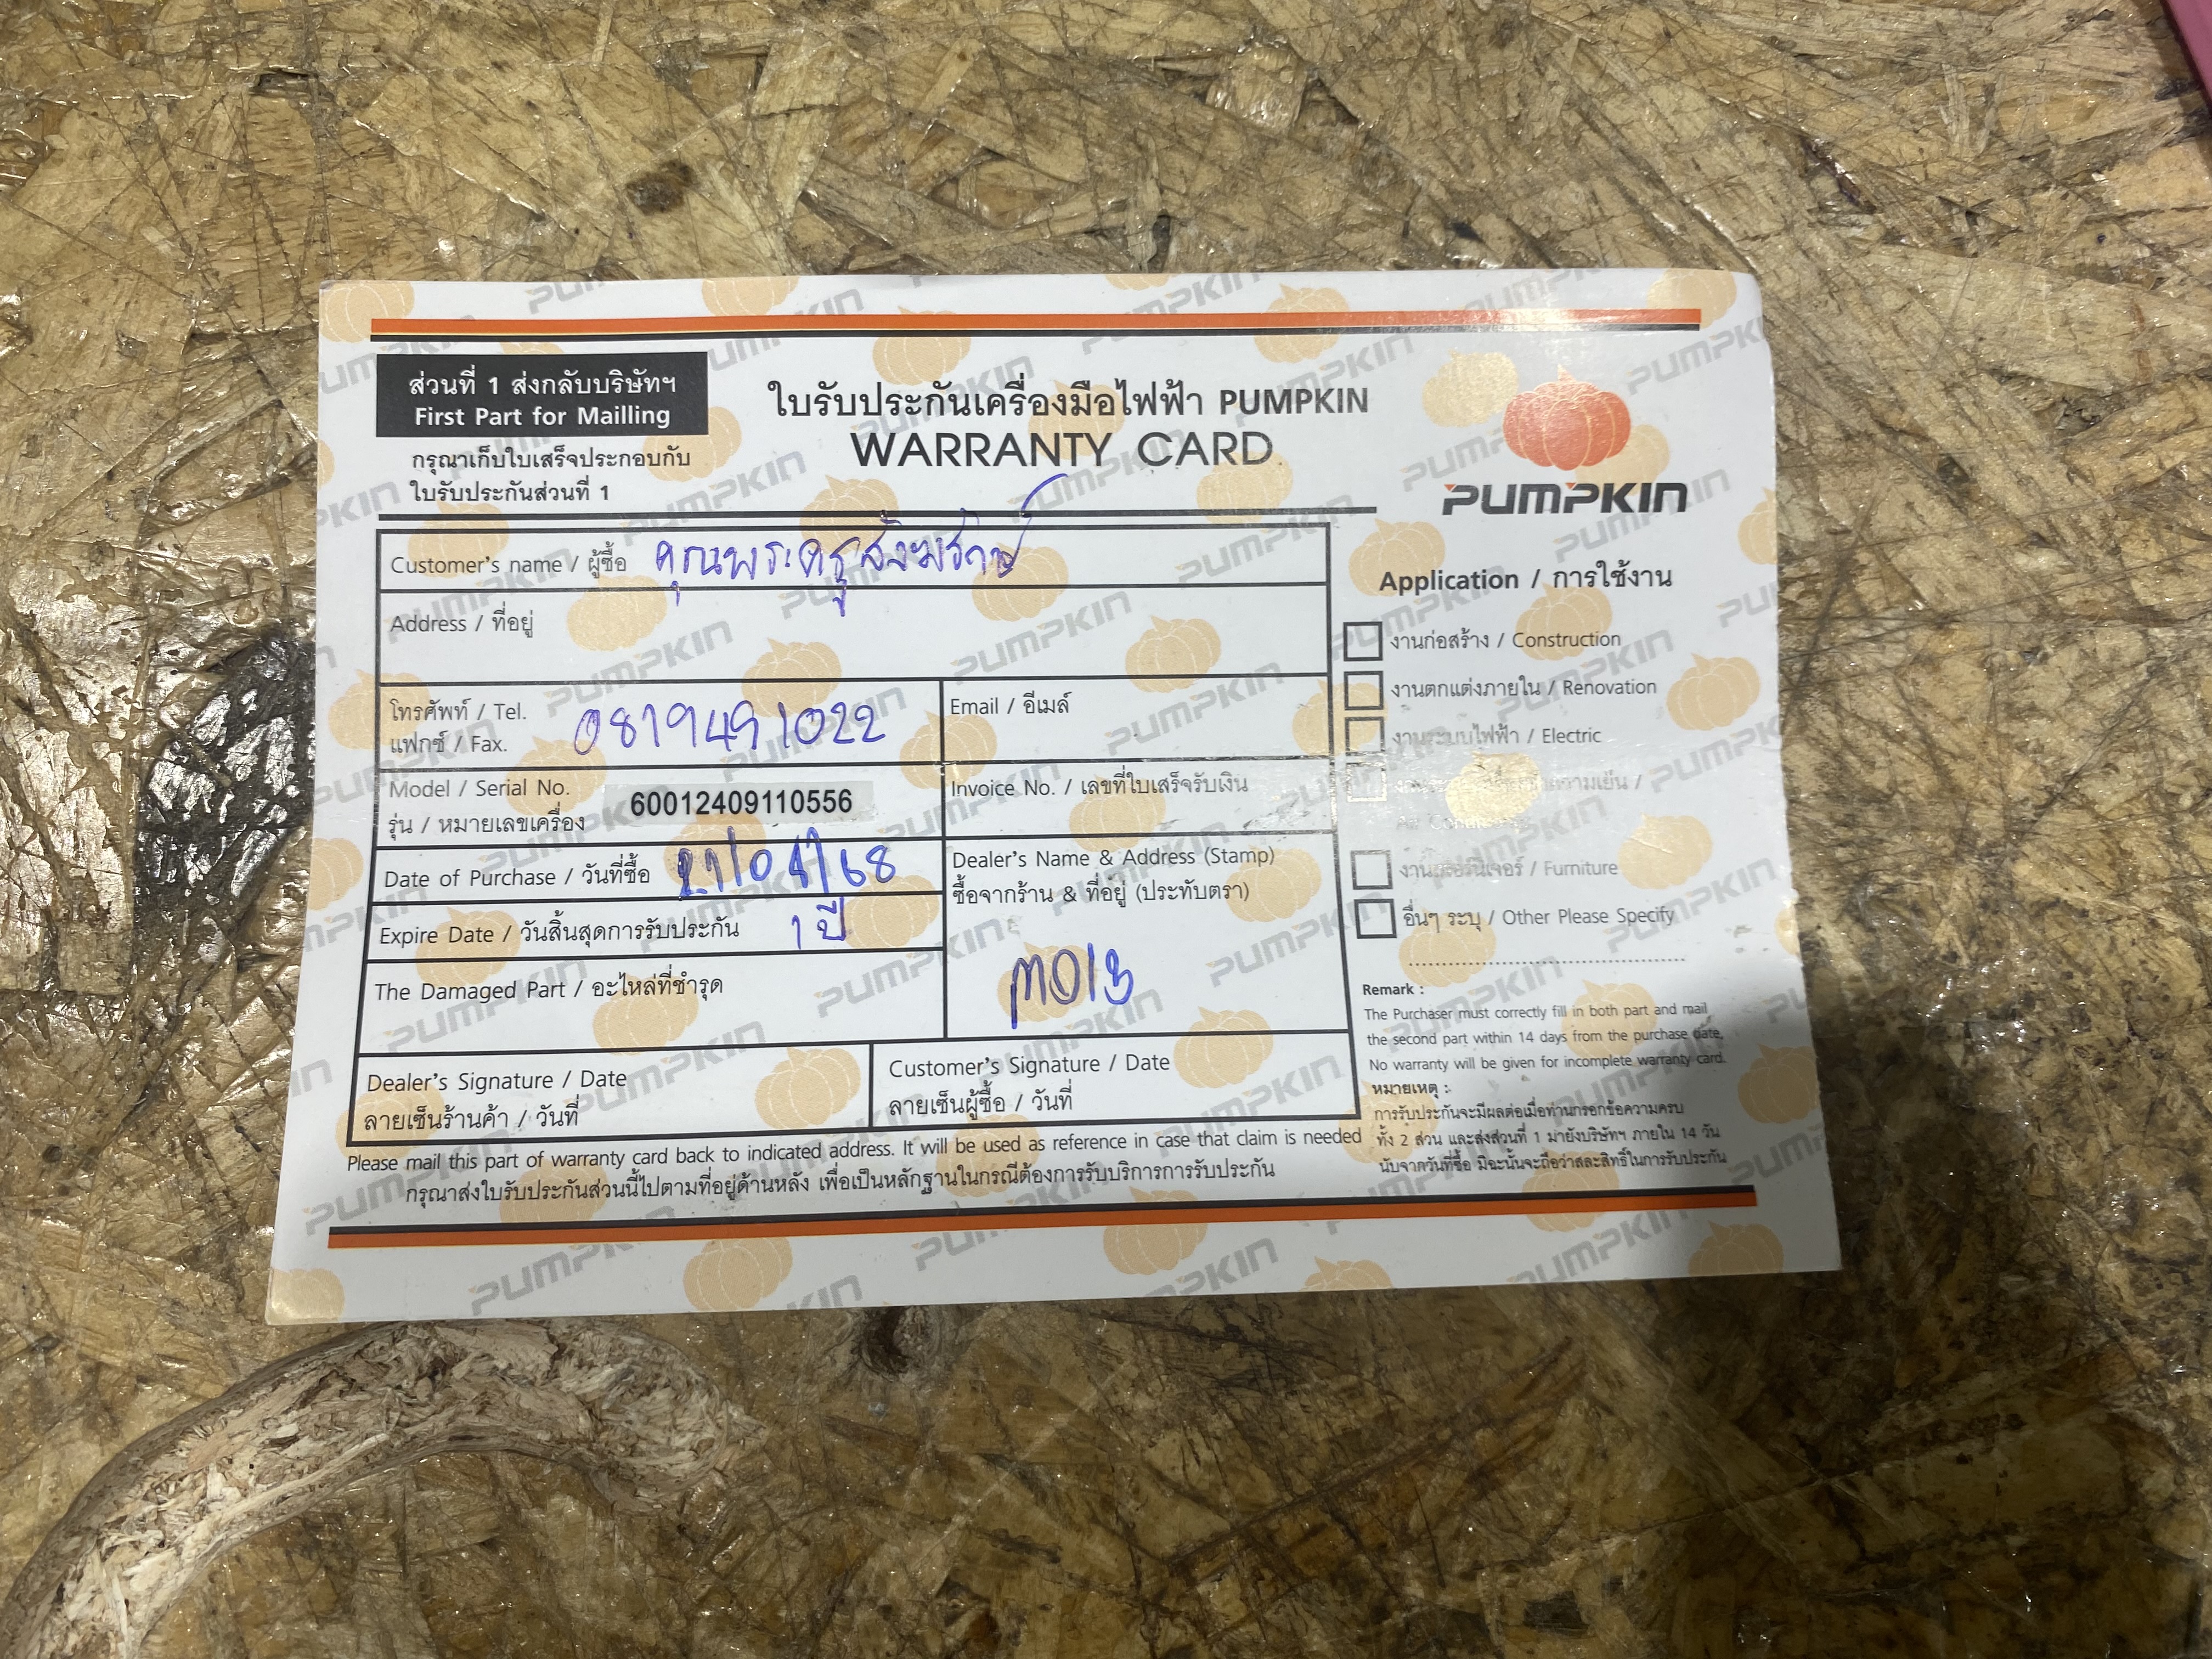 ส่วนที่ 1 ส่งกลับบริษัทฯ
First Part for Mailling
กรุณาเก็บใบเสร็จประกอบกับ
ใบรับประกันส่วนที่ 1
ใบรับประกันเครื่องมือไฟฟ้า PUMPKIN
WARRANTY CARD
PUMPKIN
Customer's name / ผู้ซื้อ คุณพระครูสังฆรักษ์
Address / ที่อยู่
โทรศัพท์ / Tel.
แฟกซ์ / Fax.
0819491022
Email / อีเมล์
Model / Serial No.
รุ่น / หมายเลขเครื่อง
60012409110556
Invoice No. / เลขที่ใบเสร็จรับเงิน
Date of Purchase / วันที่ซื้อ
Expire Date / วันสิ้นสุดการรับประกัน 1 ปี
The Damaged Part / อะไหล่ที่ชำรุด
Dealer's Name & Address (Stamp)
ซื้อจากร้าน & ที่อยู่ (ประทับตรา)
Dealer's Signature / Date
ลายเซ็นร้านค้า / วันที่
Customer's Signature / Date
ลายเซ็นผู้ซื้อ / วันที่
Please mail this part of warranty card back to indicated address. It will be used as reference in case that claim is needed
กรุณาส่งใบรับประกันส่วนนี้ไปตามที่อยู่ด้านหลัง เพื่อเป็นหลักฐานในกรณีต้องการรับบริการการรับประกัน
Application / การใช้งาน
งานก่อสร้าง / Construction
งานตกแต่งภายใน / Renovation
งานระบบไฟฟ้า / Electric
งานเฟอร์นิเจอร์ / Furniture
อื่นๆ ระบุ / Other Please Specify
Remark :
The Purchaser must correctly fill in both part and mail
the second part within 14 days from the purchase date,
No warranty will be given for incomplete warranty card.
หมายเหตุ :
การรับประกันจะมีผลต่อเมื่อท่านกรอกข้อความครบ
ทั้ง 2 ส่วน และส่งส่วนที่ 1 มายังบริษัทฯ ภายใน 14 วัน
นับจากวันที่ซื้อ มิฉะนั้นจะถือว่าสละสิทธิ์ในการรับประกัน